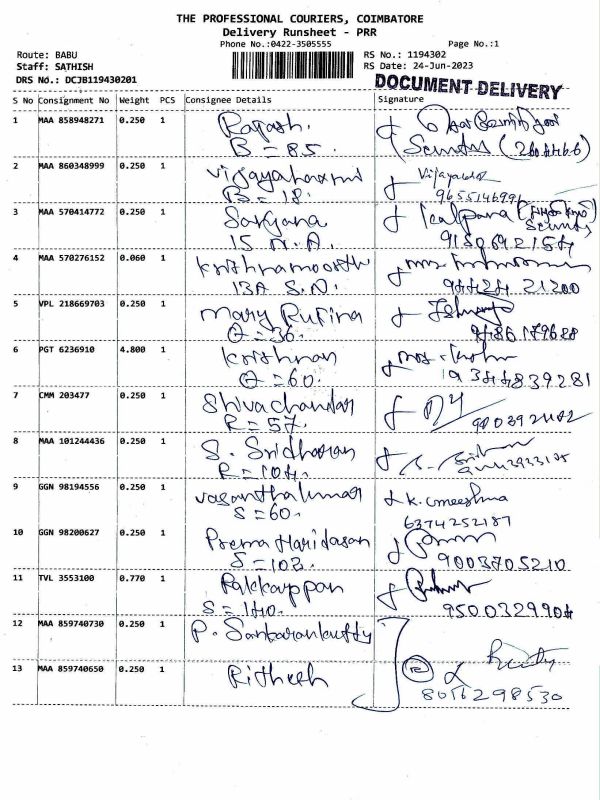 THE PROFESSIONAL COURIERS, COIMBATORE
Delivery Runsheet - PRR
Phone No.:0422-3505555 Page No.:1
Route: BABU RS No.: 1194302
Staff: SATHISH RS Date: 24-Jun-2023
DRS No.: DCJB119430201 DOCUMENT DELIVERY
S No Consignment No Weight PCS Consignee Details Signature
1 MAA 858948271 0.250 1 Rajash.
B = 85.
2 MAA 860348999 0.250 1
B = 18. 9655146991
3 MAA 570414772 0.250 1 Sanjana
15 N.A. 9150692154
4 MAA 570276152 0.060 1 Krishnamoorthi
13A S.N. 94424 21200
5 VPL 218669703 0.250 1 Mary Rufina
Q = 36.
6 PGT 6236910 4.800 1 Krishnan
Q = 60. 9344839281
7 CMM 203477 0.250 1 Shivachandar
R = 57.
8 MAA 101244436 0.250 1 S. Sridharan
R = 104.
9 GGN 98194556 0.250 1 Vasanthakumar
S = 60. 6374252187
10 GGN 98200627 0.250 1 Prema Haridasan
S = 102. 9003705210
11 TVL 3553100 0.770 1 Pakkayppan
S = 140. 9500329904
12 MAA 859740730 0.250 1 P. Sankarankutty
13 MAA 859740650 0.250 1 Ritheesh
8056298530